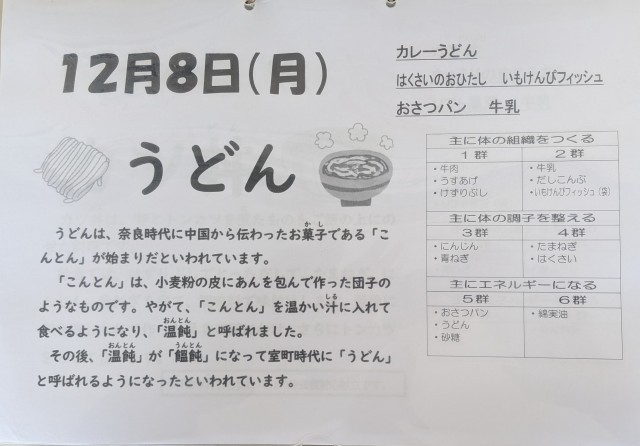 12月8日(月)
カレーうどん
はくさいのおひたし いもけんぴフィッシュ
おさつパン 牛乳
うどん
うどんは、奈良時代に中国から伝わったお菓子である「こ
かし
んとん」が始まりだといわれています。
「こんとん」は、小麦粉の皮にあんを包んで作った団子の
ようなものです。やがて、「こんとん」を温かい汁に入れて
しる
食べるようになり、「温飩」と呼ばれました。
おんとん
その後、「温飩」が「饂飩」になって室町時代に「うどん」
おんとん うんとん
と呼ばれるようになったといわれています。
主に体の組織をつくる
1群 2群
・牛肉 ・牛乳
・うすあげ ・だしこんぶ
・けずりぶし ・いもけんぴフィッシュ(袋)
主に体の調子を整える
3群 4群
・にんじん ・たまねぎ
・青ねぎ ・はくさい
主にエネルギーになる
5群 6群
・おさつパン ・綿実油
・うどん
・砂糖